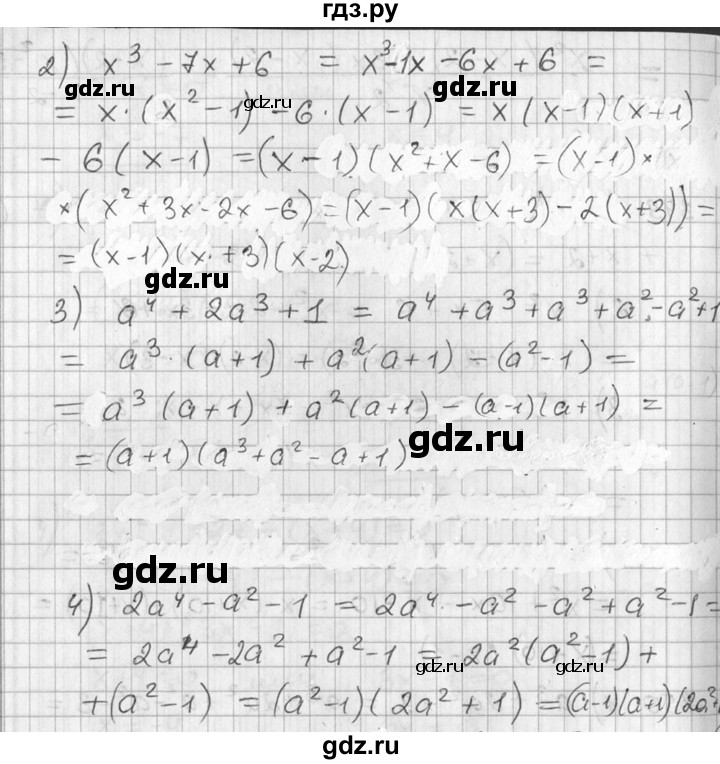 гдз.ру
2) x³ - 7x + 6 = x³ - 1x - 6x + 6 =
gdz.ru gdz.ru gdz.ru
= x · (x² - 1) - 6 · (x - 1) = x (x - 1)(x + 1)
- 6 (x - 1) = (x - 1)(x² + x - 6) = (x - 1) ×
× (x² + 3x - 2x - 6) = (x - 1)(x(x + 3) - 2(x + 3)) =
= (x - 1)(x + 3)(x - 2)
gdz.ru
3) a⁴ + 2a³ + 1 = a⁴ + a³ + a³ + a² - a² + 1
= a³ · (a + 1) + a²(a + 1) - (a² - 1) =
= a³ (a + 1) + a²(a + 1) - (a - 1)(a + 1) =
gdz.ru
= (a + 1)(a³ + a² - a + 1)
gdz.ru
4) 2a⁴ - a² - 1 = 2a⁴ - a² - a² + a² - 1 =
= 2a⁴ - 2a² + a² - 1 = 2a²(a² - 1) +
gdz.ru gdz.ru
+ (a² - 1) = (a² - 1)(2a² + 1) = (a - 1)(a + 1)(2a² +
gdz.ru